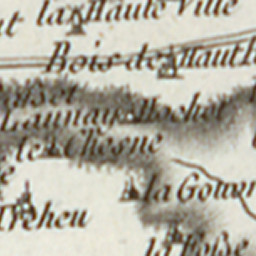 la Haute Ville
Bois de Haut
Launay Rochet
le Chesne
la Gouar
Treheu
la Fosse